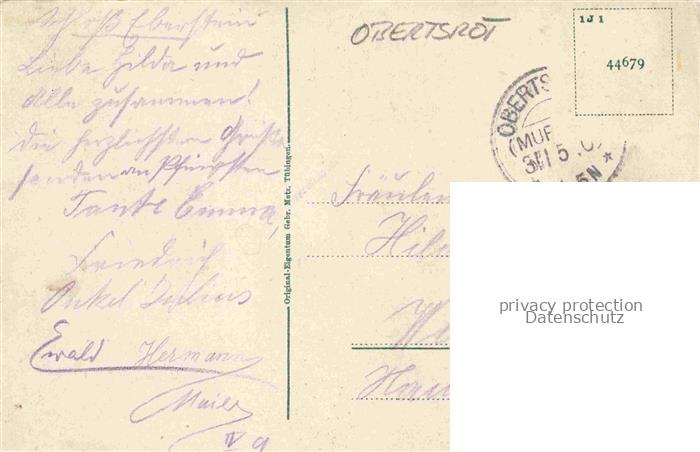 Schloß Eberstein
Liebe Hilda und
Alle zusammen!
Die herzlichsten Grüße
senden an Pfingsten
Tante Emma,
Friedrich
Onkel Julius
Ewald Hermann
Maier
Original-Eigentum Gebr. Metz, Tübingen.
OBERTSROT
1J1
44679
OBERTS
(MUR
5
Fräulein
privacy protection
Datenschutz